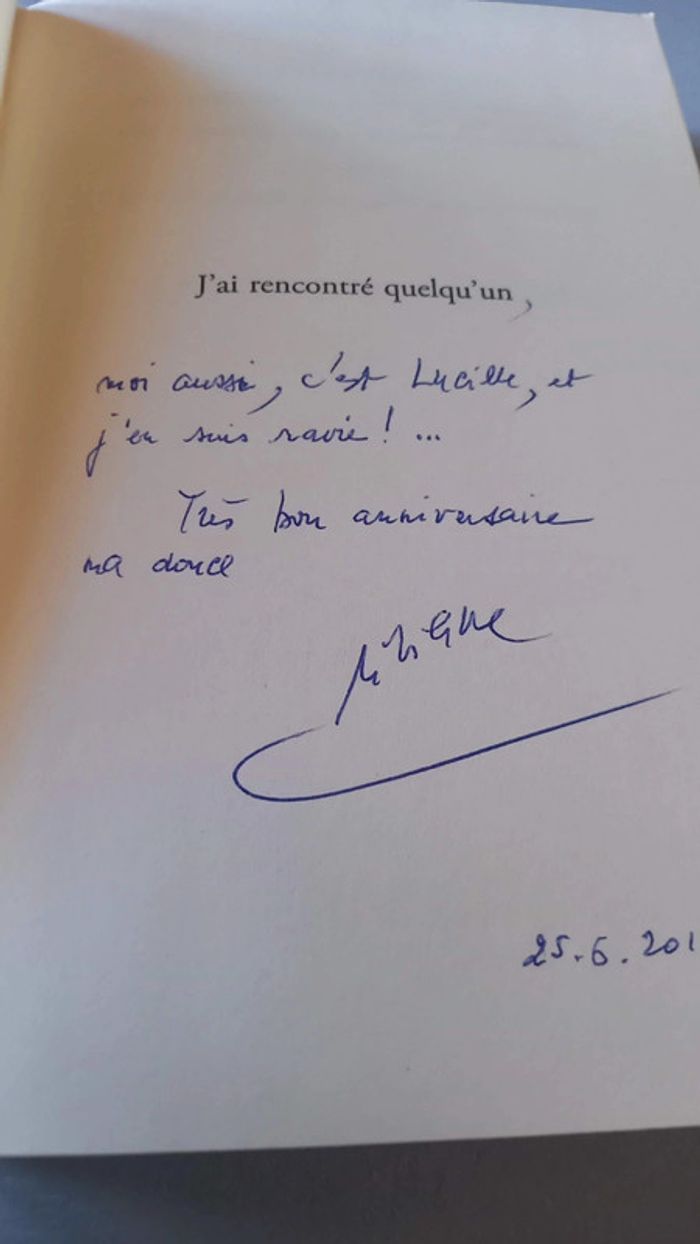 J'ai rencontré quelqu'un,
moi aussi, c'est Lucille, et
j'en suis ravie ! ...
Très bon anniversaire
ma douce
25.6.201